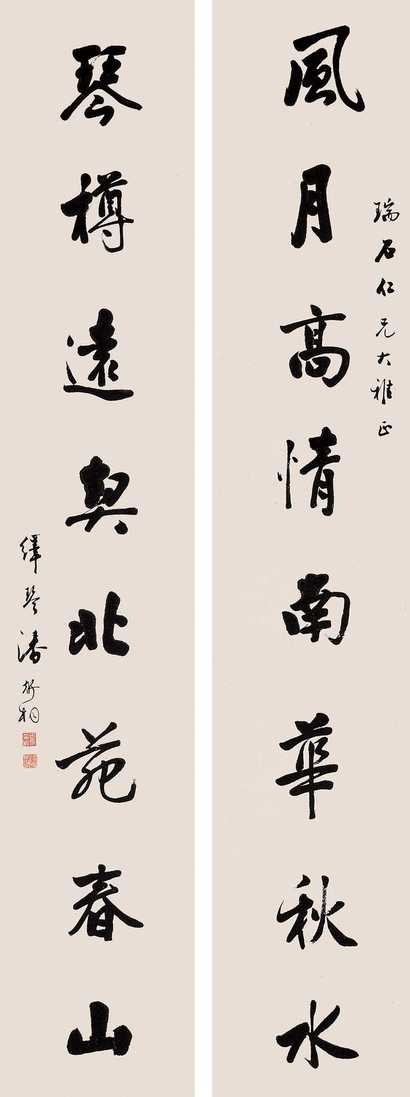 瑞石仁兄大雅正
風月高情南華秋水
琴樽遠契北苑春山
繹琴潘衍桐